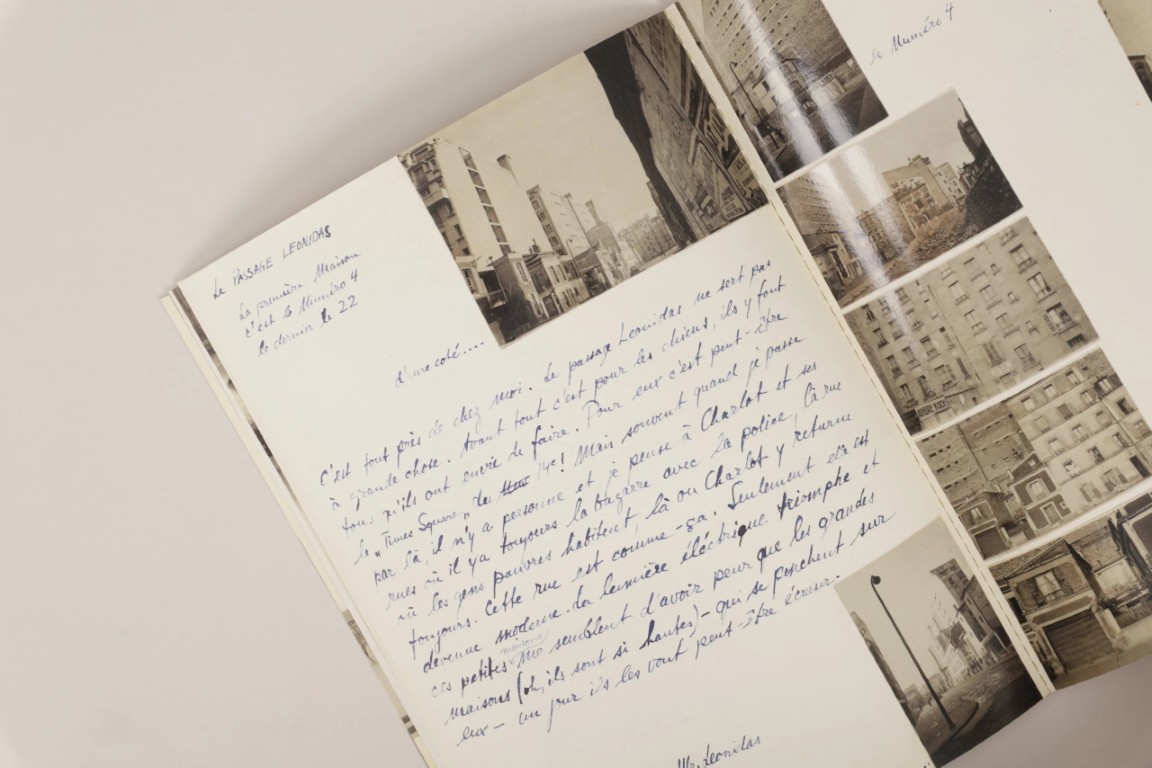 Le PASSAGE LEONIDAS
La première Maison
c'est le Numéro 4
le dernier le 22
d'une coté....
C'est tout près de chez moi. Le passage Leonidas ne sert pas
à grande chose. Avant tout c'est pour les chiens, ils y font
tous qu'ils ont envie de faire. Pour eux c'est peut-être
le "Times Square" du 14e! Mais souvent quand je passe
par là, il n'y a personne et je pense à Charlot et ses
rues où il y a toujours la bagarre avec la police, là rue
où les gens pauvres habitent, là ou Charlot y returne
toujours. Cette rue est comme-ça. Seulement elle est
devenue moderne. La lumière éléctrique triomphe et
ces petites maisons semblent d'avoir peur que les grandes
maisons (oh, ils sont si hautes) - qui se penchent sur
eux - un jour ils les vont peut-être écraser.
Mr. Leonidas
le Numéro 4